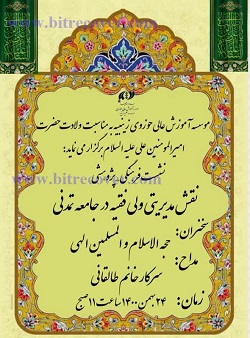 www.bitrecover.com
موسسه آموزش عالی حوزوی زینبیه به مناسبت ولادت حضرت
امیرالمومنین علی علیه السلام برگزار می نماید:
نشست فرهنگی پژوهشی
www.bitrecover.com
نقش مدیریتی ولی فقیه در جامعه تمدنی
سخنران: حجه الاسلام والمسلمین الهی
مداح: سرکار خانم طالقانی
زمان: ۲۴ بهمن ۱۴۰۰ ساعت ۱۱ صبح